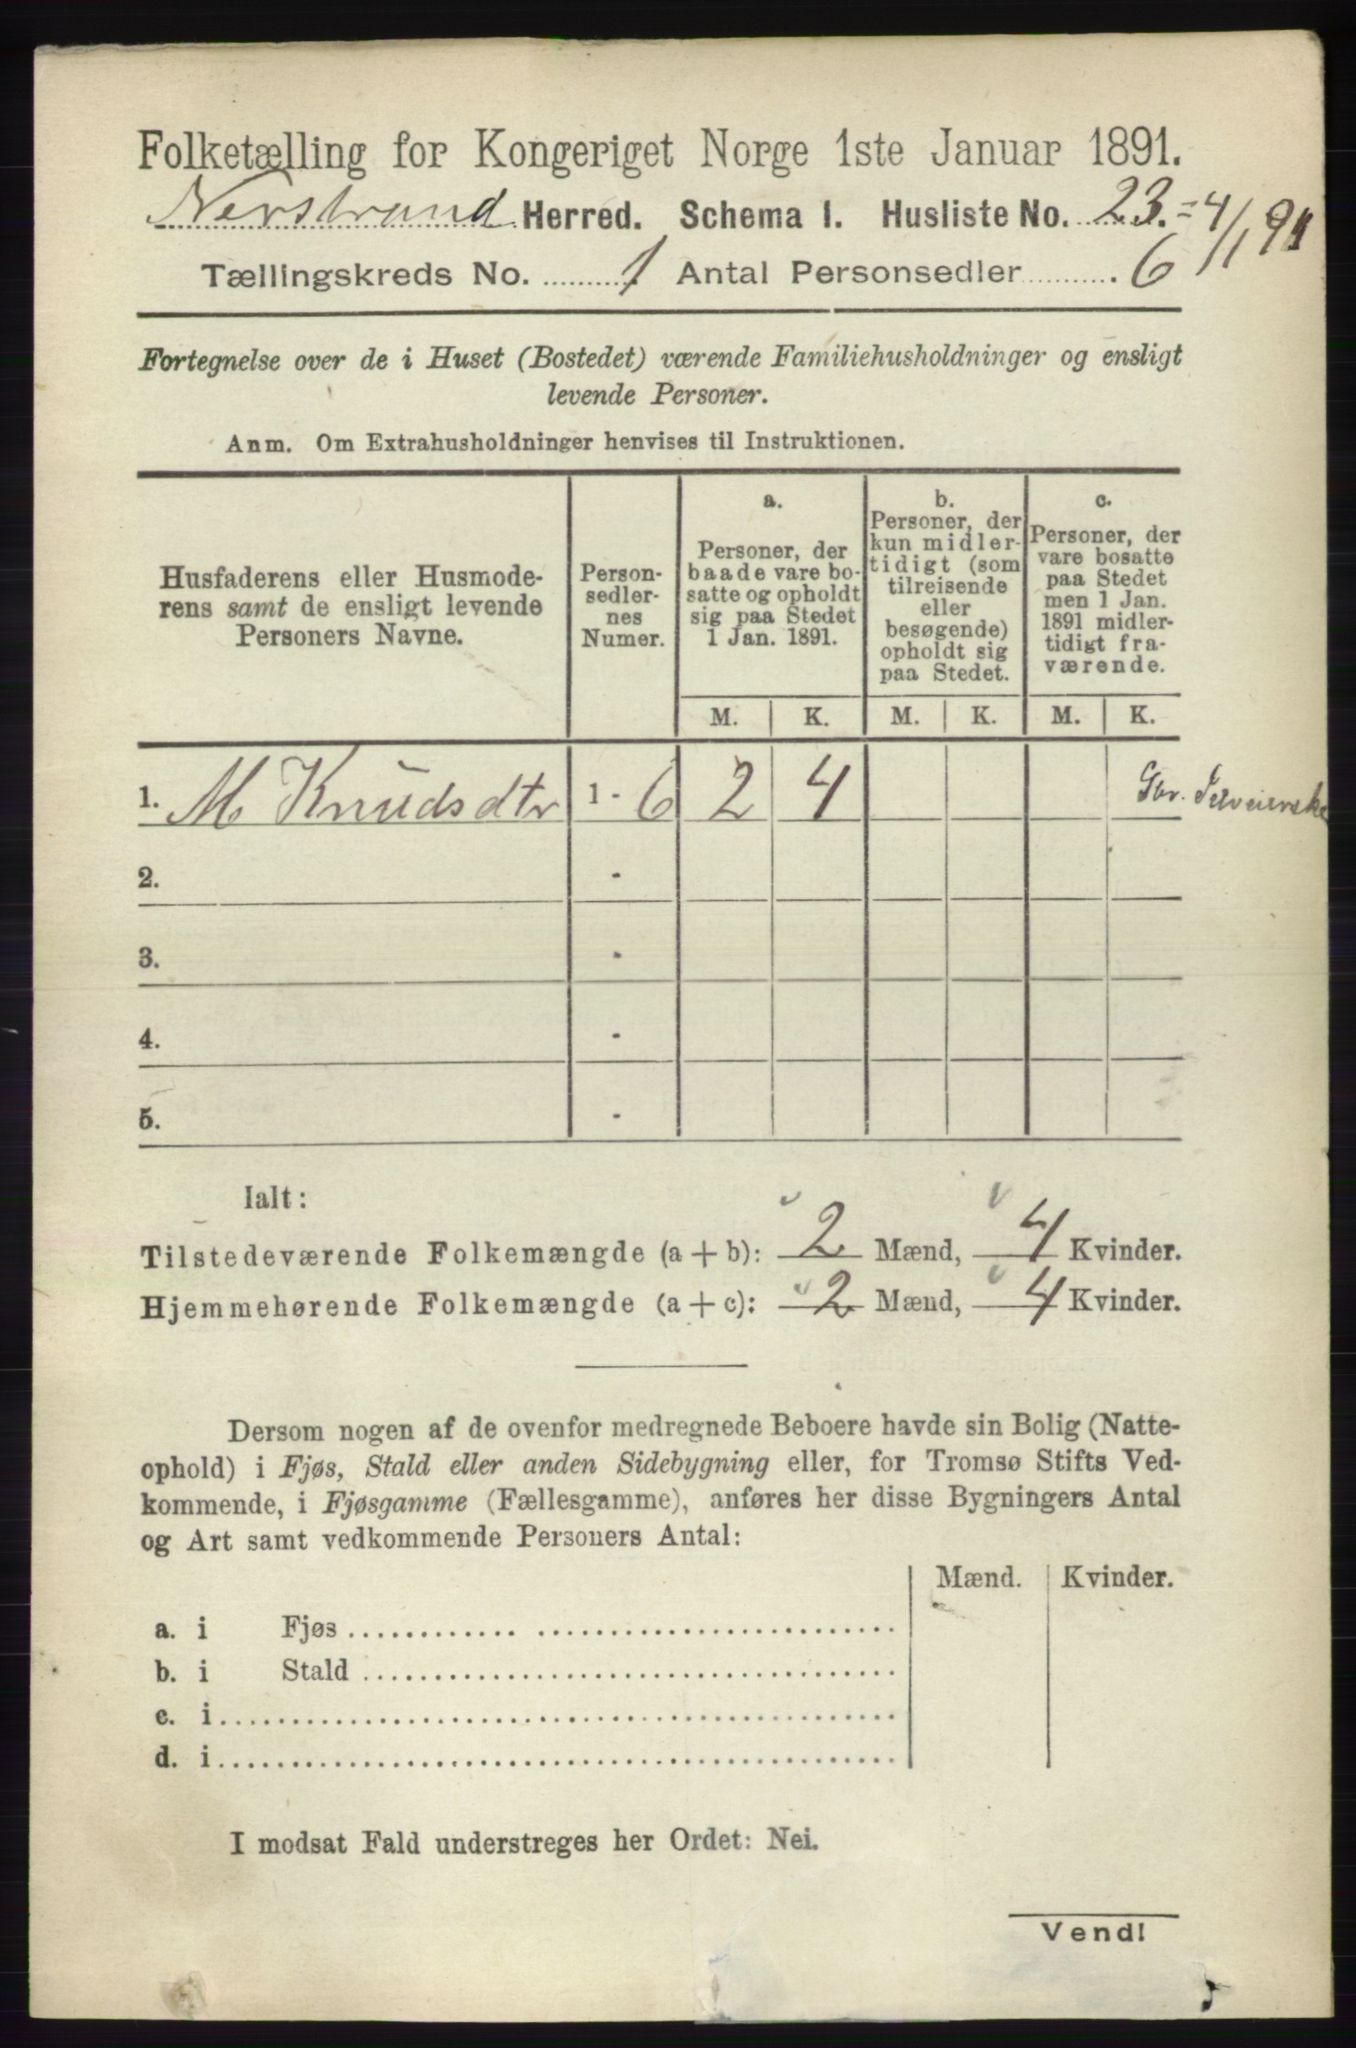 Folketælling for Kongeriget Norge 1ste Januar 1891.
Nerstrand Herred. Schema 1. Husliste No. 23. = 4/1 91
Tællingskreds No. 1 Antal Personsedler 6
Fortegnelse over de i Huset (Bostedet) værende Familiehusholdninger og ensligt
levende Personer.
Anm. Om Extrahusholdninger henvises til Instruktionen.
Husfaderens eller Husmode-
rens samt de ensligt levende
Personers Navne.
Person-
sedler-
nes
Numer.
a.
Personer, der
baade vare bo-
satte og opholdt
sig paa Stedet
1 Jan. 1891.
b.
Personer, der
kun midler-
tidigt (som
tilreisende
eller
besøgende)
opholdt sig
paa Stedet.
c.
Personer, der
vare bosatte
paa Stedet
men 1 Jan.
1891 midler-
tidigt fra-
værende.
M. K. M. K. M. K.
1. M Knudsdtr 1 - 6 2 4 Gbr. Selveierske
2. -
3. -
4. -
5. -
Ialt:
Tilstedeværende Folkemængde (a + b): 2 Mænd, 4 Kvinder.
Hjemmehørende Folkemængde (a + c): 2 Mænd, 4 Kvinder.
Dersom nogen af de ovenfor medregnede Beboere havde sin Bolig (Natte-
ophold) i Fjøs, Stald eller anden Sidebygning eller, for Tromsø Stifts Ved-
kommende, i Fjøsgamme (Fællesgamme), anføres her disse Bygningers Antal
og Art samt vedkommende Personers Antal:
Mænd. Kvinder.
a. i Fjøs
b. i Stald
c. i
d. i
I modsat Fald understreges her Ordet: Nei.
Vend!